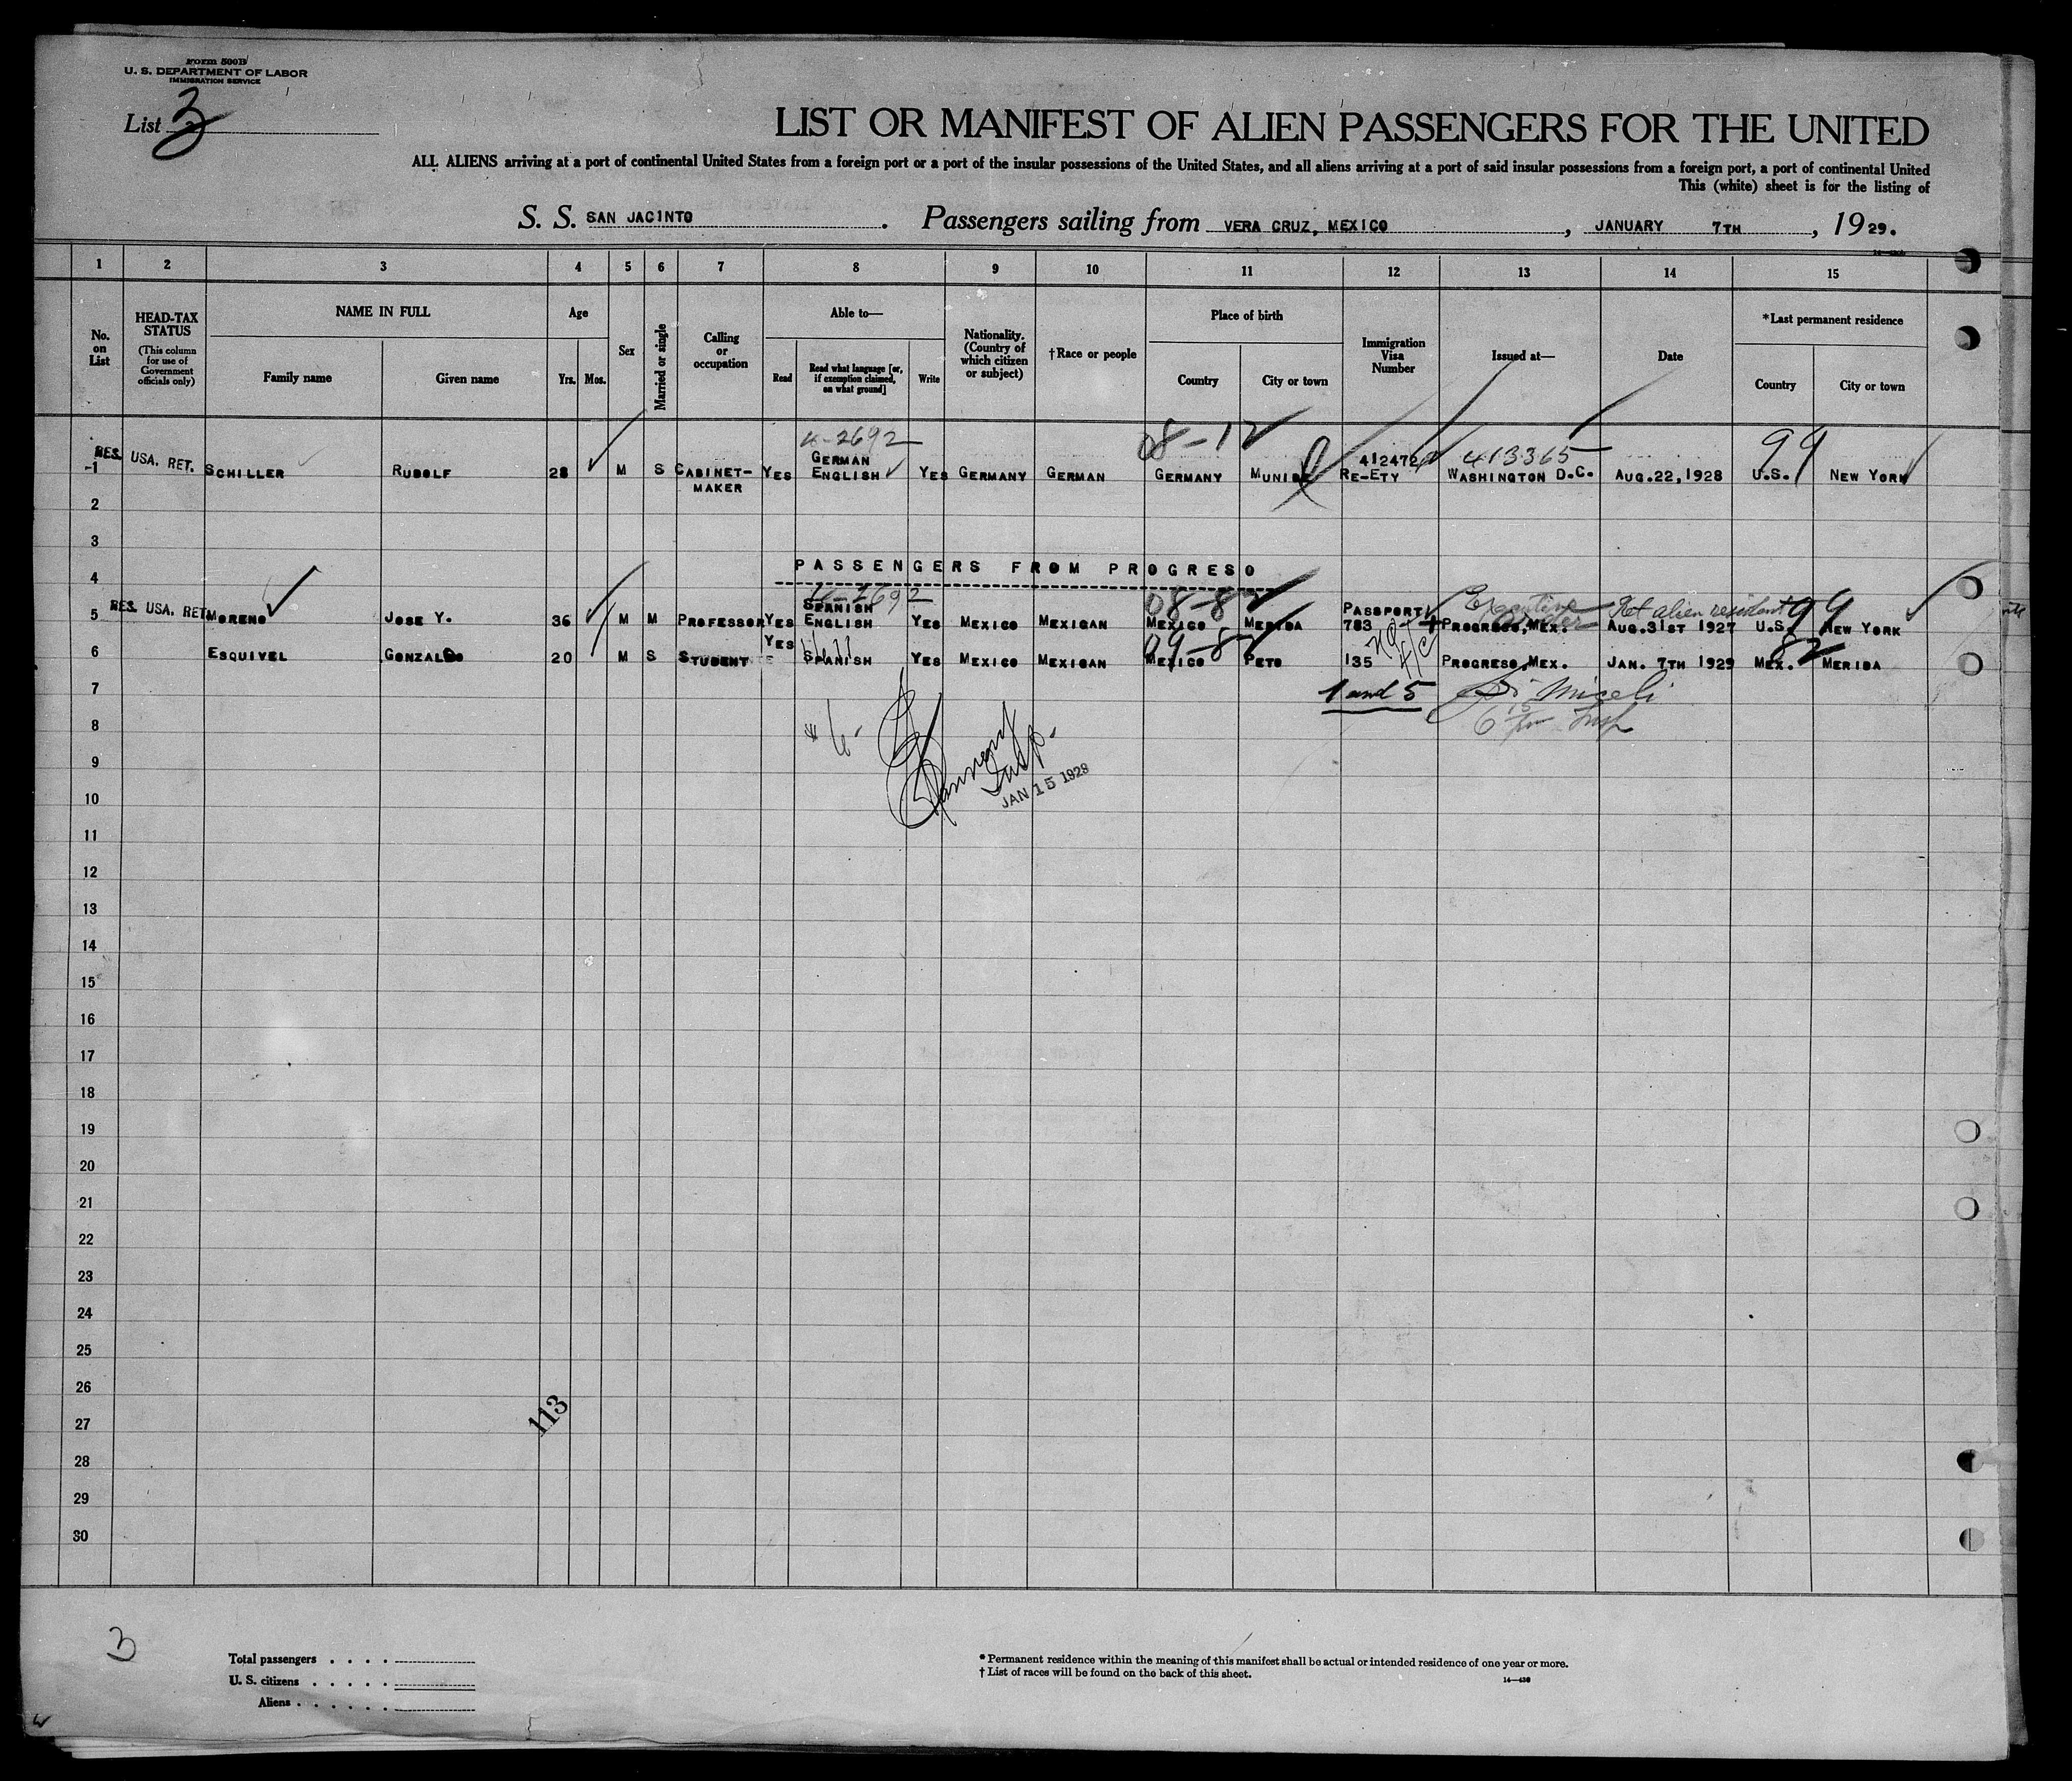 Form 500B
U. S. DEPARTMENT OF LABOR
IMMIGRATION SERVICE
List 3
LIST OR MANIFEST OF ALIEN PASSENGERS FOR THE UNITED
ALL ALIENS arriving at a port of continental United States from a foreign port or a port of the insular possessions of the United States, and all aliens arriving at a port of said insular possessions from a foreign port, a port of continental United
This (white) sheet is for the listing of
S. S. SAN JACINTO . Passengers sailing from VERA CRUZ, MEXICO , JANUARY 7TH , 1929.
1 2 3 4 5 6 7 8 9 10 11 12 13 14 15
No. on List
HEAD-TAX STATUS
(This column for use of Government officials only)
NAME IN FULL
Family name
Given name
Age
Yrs. Mos.
Sex
Married or single
Calling or occupation
Able to—
Read
Read what language [or, if exemption claimed, on what ground]
Write
Nationality. (Country of which citizen or subject)
†Race or people
Place of birth
Country
City or town
Immigration Visa Number
Issued at—
Date
*Last permanent residence
Country
City or town
4-2692 08-12 413365 99
1 RES. USA. RET. SCHILLER RUDOLF 28 M S CABINET-MAKER YES GERMAN ENGLISH YES GERMANY GERMAN GERMANY 412472 RE-ETY WASHINGTON D.C. AUG.22,1928 U.S. NEW YORK
2
3
PASSENGERS FROM PROGRESO
4
4-2692 08-82 Executive Order Ret alien resident 99
5 RES. USA. RET MORENO JOSE Y. 36 M M PROFESSOR YES SPANISH ENGLISH YES MEXICO MEXICAN MEXICO MERIDA PASSPORT 783 PROGRESO,MEX. AUG.31ST 1927 U.S. NEW YORK
09-82 82
6 ESQUIVEL GONZALO 20 M S STUDENT YES SPANISH YES MEXICO MEXICAN MEXICO PETO 135 PROGRESO,MEX. JAN. 7TH 1929 MEX. MERIDA
7 1 and 5 Miceli
8
Insp.
9
JAN 15 1929
10
11
12
13
14
15
16
17
18
19
20
21
22
23
24
25
26
113
27
28
29
30
3
Total passengers
U. S. citizens
Aliens
* Permanent residence within the meaning of this manifest shall be actual or intended residence of one year or more.
† List of races will be found on the back of this sheet.
14—430